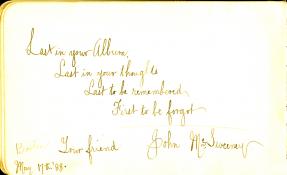 Last in your Album,
Last in your thoughts
Last to be remembered
First to be forgot
Your friend John McSweeney
May 17th '88.